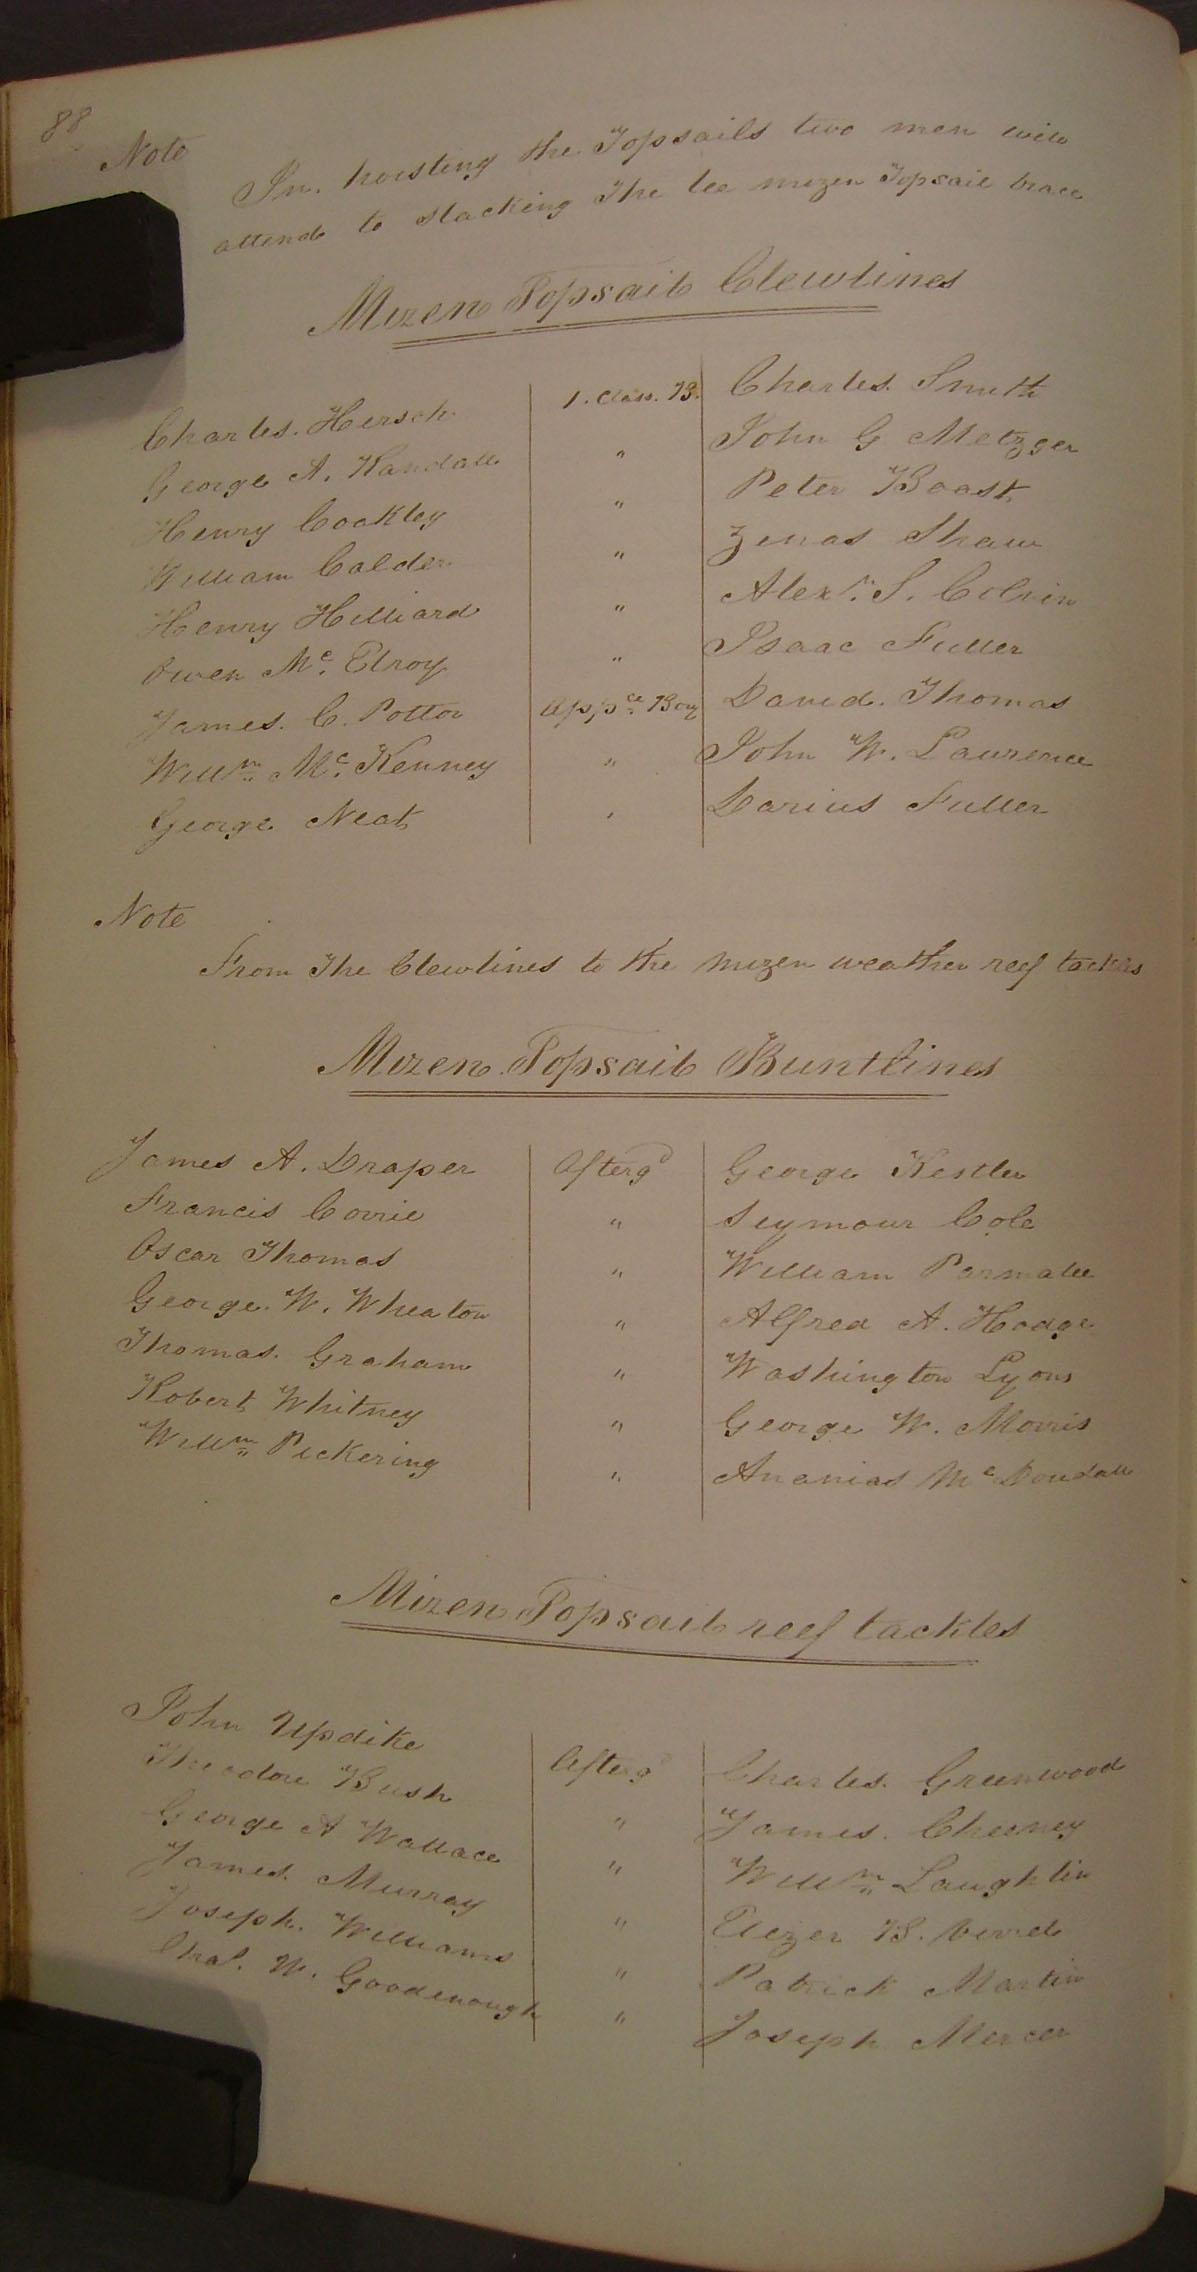 88
Note
In. hoisting the Topsails two men will
attend to slacking The lee mizen Topsail brace
Mizen Topsail Clewlines
Charles. Hersch 1. Class. B. Charles. Smith
George A. Randall " John G Metzger
Henry Coakley " Peter Boast
William Calder " Zenas Shaw
Henry Hilliard " Alexr. S. Colvin
Owen Mc. Elroy " Isaac Fuller
James. C. Potter Appce Boy David. Thomas
Willm Mc. Kenney " John W. Laurence
George Neat " Darius Fuller
Note
From The Clewlines to the mizen weather reef tackles
Mizen Topsail Buntlines
James A. Draper Afterg'd George Kestler
Francis Corrie " Seymour Cole
Oscar Thomas " William Parmalee
George. W. Wheaton " Alfred A. Hodge
Thomas. Graham " Washington Lyons
Robert Whitney " George W. Morris
Willm Pickering " Ananias Mc
Mizen Topsail reef tackles
John Updike Afterg'd Charles. Greenwood
Theodore Bush " James. Cheeney
George A Wallace " Willm Laughlin
James. Murray " B.
Joseph. Williams " Patrick Martin
Chas. W. Goodenough " Joseph Mercer